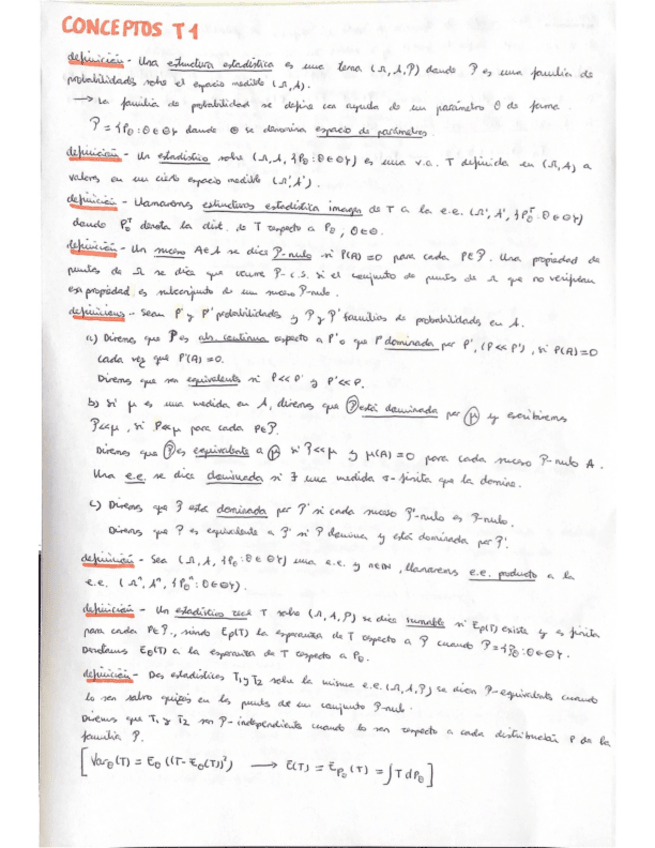 CONCEPTOS T1
definición - Una estructura estadística es una terna (Ω, A, P) donde P es una familia de
probabilidades sobre el espacio medible (Ω, A).
→ La familia de probabilidad se define con ayuda de un parámetro θ de forma
P = {Pθ : θ ∈ Θ} donde Θ se denomina espacio de parámetros.
definición - Un estadístico sobre (Ω, A, {Pθ : θ ∈ Θ}) es una v.a. T definida en (Ω, A) a
valores en un cierto espacio medible (Ω', A').
definición - Llamaremos estructura estadística imagen de T a la e.e. (Ω', A', {Pθ^T : θ ∈ Θ})
donde Pθ^T denota la dist. de T respecto a Pθ, θ ∈ Θ.
definición - Un suceso A ∈ A se dice P-nulo si P(A) = 0 para cada P ∈ P. Una propiedad de
puntos de Ω se dice que ocurre P-c.s. si el conjunto de puntos de Ω que no verifican
esa propiedad es subconjunto de un suceso P-nulo.
definiciones - Sean P y P' probabilidades y P y P' familias de probabilidades en A.
a) Diremos que P es abs. continua respecto a P' o que P dominada por P', (P << P'), si P(A) = 0
cada vez que P'(A) = 0.
Diremos que son equivalentes si P << P' y P' << P.
b) Si μ es una medida en A, diremos que P está dominada por μ y escribiremos
P << μ, si P << μ para cada P ∈ P.
Diremos que P es equivalente a μ si P << μ y μ(A) = 0 para cada suceso P-nulo A.
Una e.e. se dice dominada si ∃ una medida σ-finita que la domine.
c) Diremos que P está dominada por P' si cada suceso P'-nulo es P-nulo.
Diremos que P es equivalente a P' si P domina y está dominada por P'.
definición - Sea (Ω, A, {Pθ : θ ∈ Θ}) una e.e. y n ∈ N, llamaremos e.e. producto a la
e.e. (Ω^n, A^n, {Pθ^n : θ ∈ Θ}).
definición - Un estadístico real T sobre (Ω, A, P) se dice sumable si Ep(T) existe y es finita
para cada P ∈ P., siendo Ep(T) la esperanza de T respecto a P cuando P = {Pθ : θ ∈ Θ}.
Denotamos Eθ(T) a la esperanza de T respecto a Pθ.
definición - Dos estadísticos T1 y T2 sobre la misma e.e. (Ω, A, P) se dicen P-equivalentes cuando
lo sean salvo quizás en los puntos de un conjunto P-nulo.
Diremos que T1 y T2 son P-independientes cuando lo son respecto a cada distribución P de la
familia P.
[Varθ(T) = Eθ((T - Eθ(T))²) → E(T) = E_Pθ(T) = ∫T dPθ]